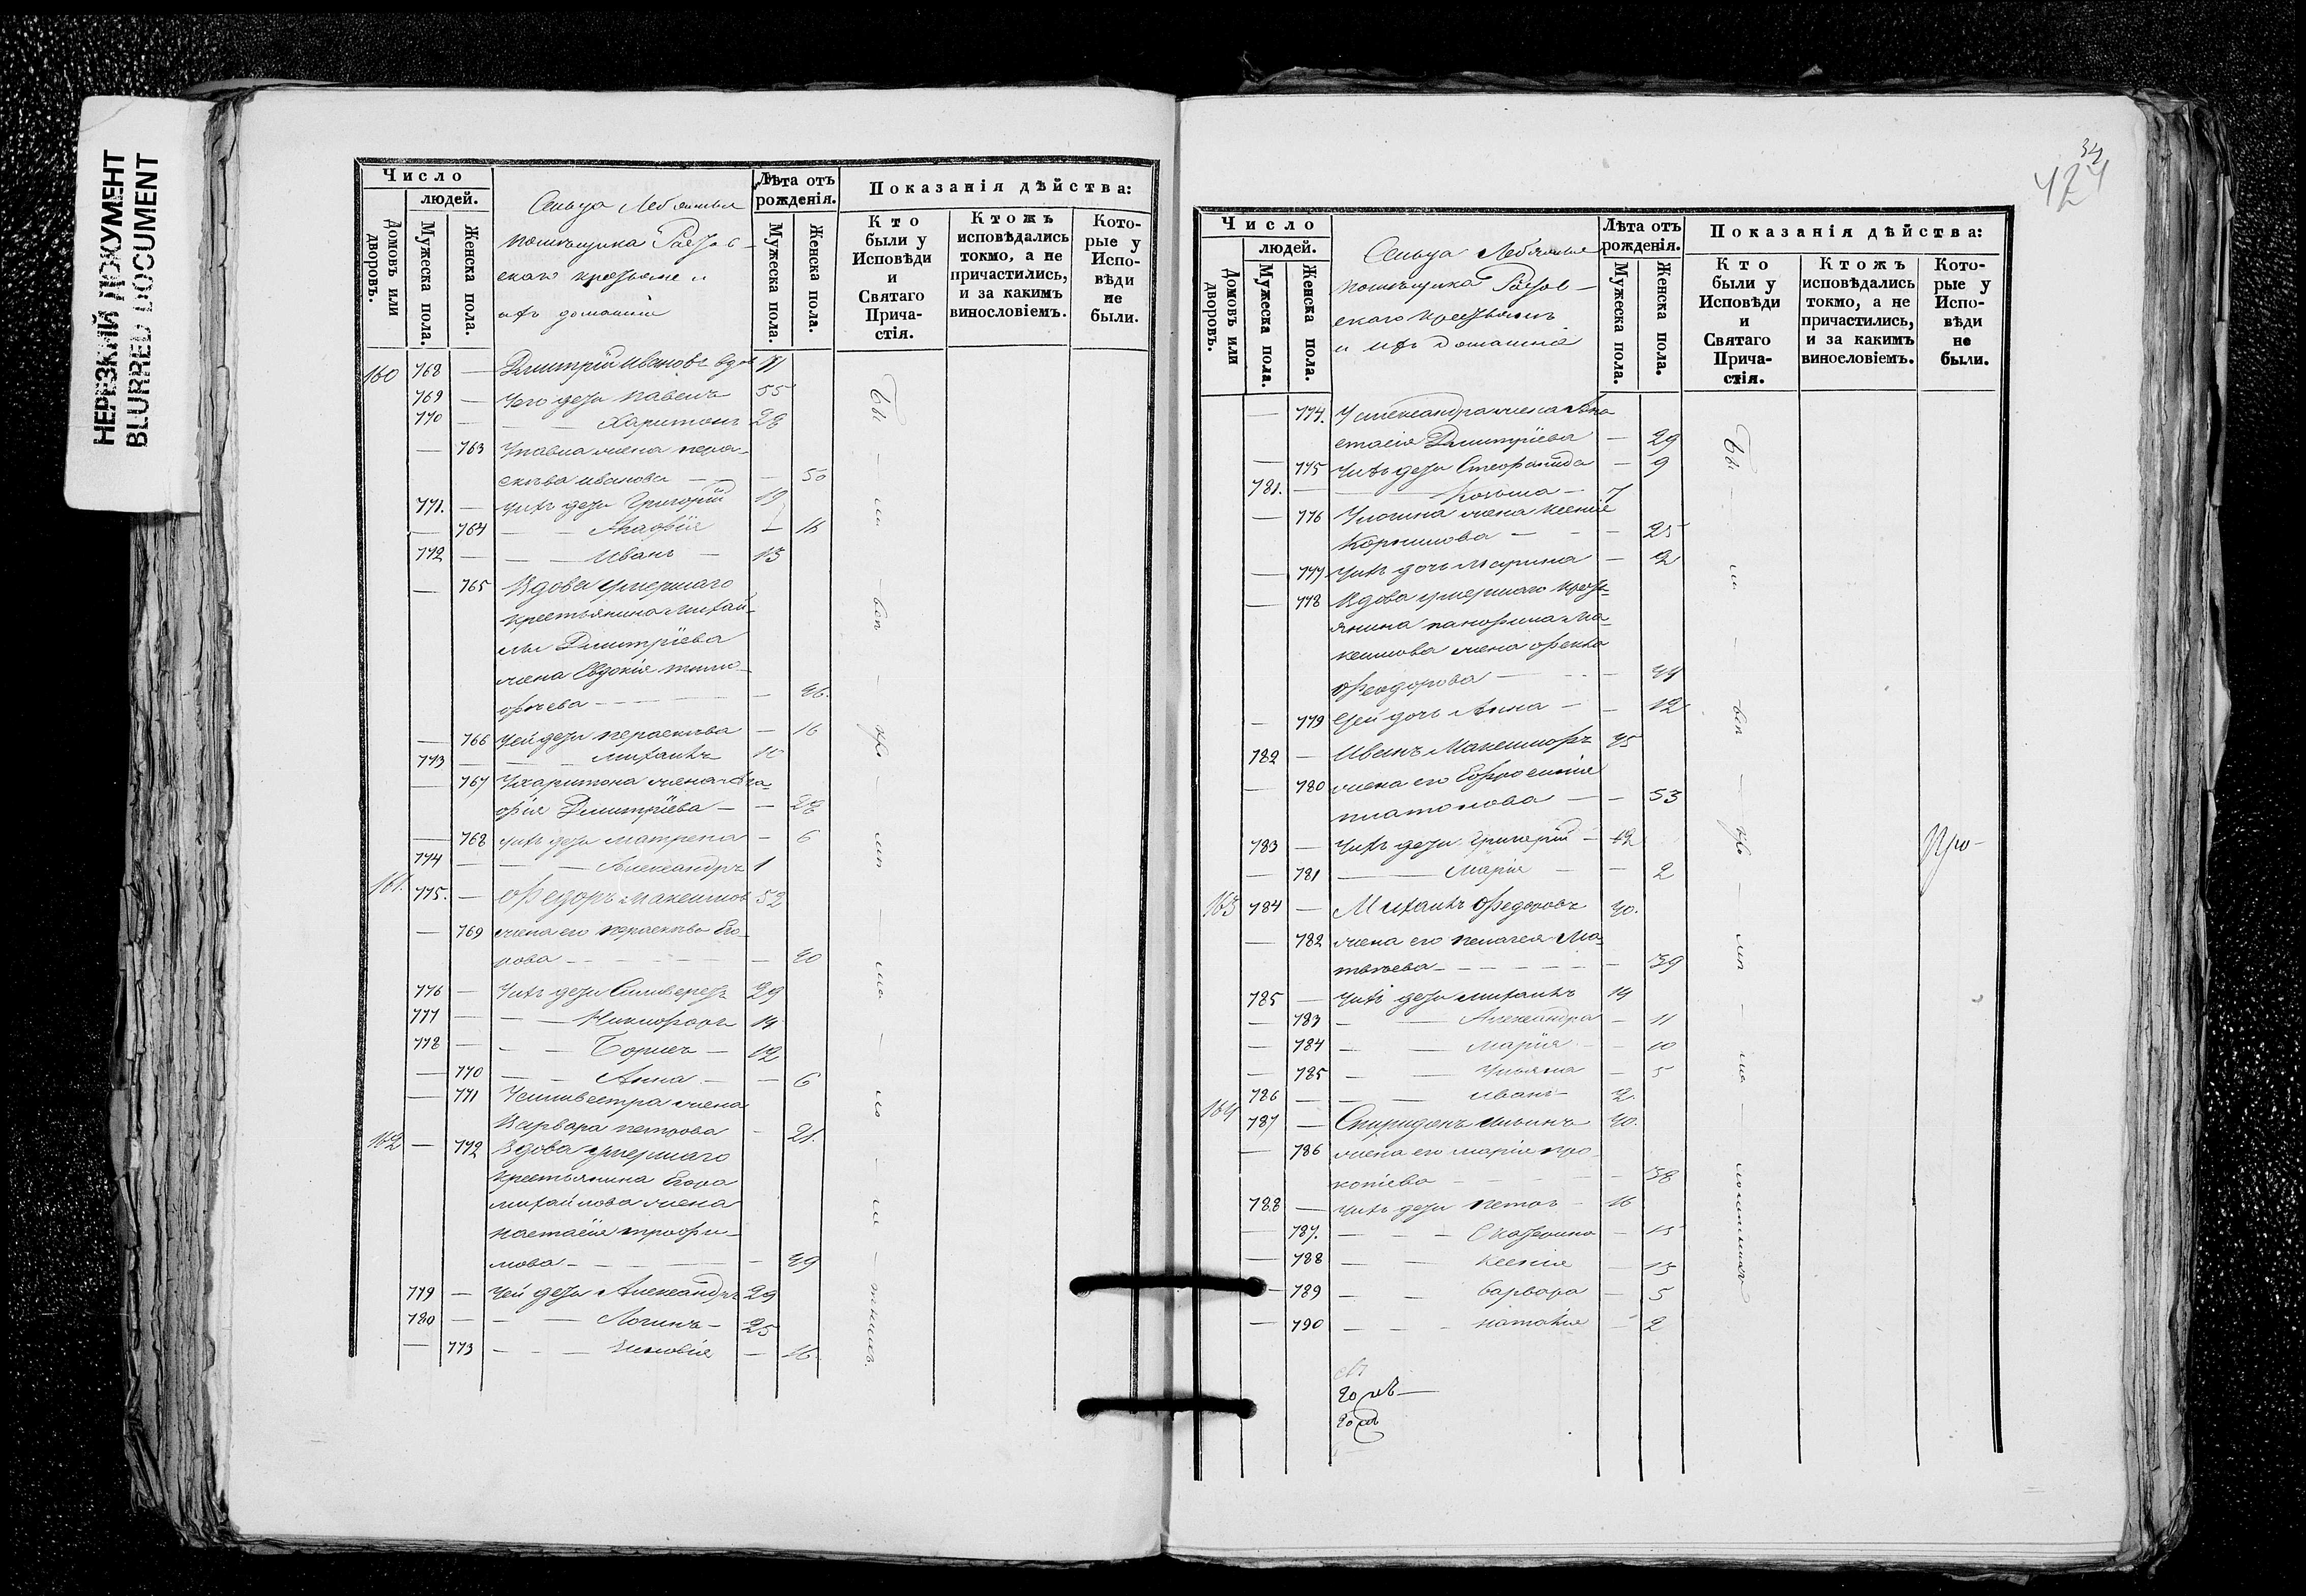 НЕРЕЗКИЙ ДОКУМЕНТ
BLURRED DOCUMENT
Число
людей.
Домовъ или дворовъ.
Мужеска пола.
Женска пола.
Сельца Лебяжья
помѣщика
скаго
ихъ домашніе
Лѣта отъ рожденія.
Мужеска пола.
Женска пола.
Показанія дѣйства:
Кто были у Исповѣди и Святаго Причастія.
Ктожъ исповѣдались токмо, а не причастились, и за какимъ винословіемъ.
Которые у Исповѣди не были.
160 768 — Дмитрій Ивановъ вдов
769 — Его дети Павелъ 55
770 — — — Харитонъ 28
— 763 У павла жена пера-
скева иванова — — 50
771. — Ихъ дети Григорій 19
— 764 — — Агафія —
772 — — — Иванъ — 13
— 765 Вдова умершаго
крестьянина Михай-
лы Дмитріева
жена Евдокія тимо-
фѣева — — — 46.
— 766 Ея дети пераскева — 16
773 — — — Михаилъ 10
— 767 У харитона жена Ага-
фія Дмитріева — — 28
— 768 ихъ дети матрена — 6
774 — — — Александръ 1
161. 775. — Федоръ Максимов 52
— 769 жена его пераскева Его-
рова — — — — 40
776 — Ихъ дети Сильверстъ 29
777 — — — Никифоръ 14
778 — — — Борисъ — 12
— 770 — — Анна — — 6
— 771 У силивестра жена
Варвара петрова — 21.
162 — 772 Вдова умершаго
крестьянина Егора
михайлова жена
настасія трофи-
мова — — — — 49
779 — Ея дети Александръ 29
780 — — — Логинъ — 25
— 773 — — — Зиновія — 16.
Бы — ли — вси — при — ли
424
Число
людей.
Домовъ или дворовъ.
Мужеска пола.
Женска пола.
Сельца Лебяжья
помѣщика
скаго
и ихъ домашніе
Лѣта отъ рожденія.
Мужеска пола.
Женска пола.
Показанія дѣйства:
Кто были у Исповѣди и Святаго Причастія.
Ктожъ исповѣдались токмо, а не причастились, и за какимъ винословіемъ.
Которые у Исповѣди не были.
— 774. У александра жена Ана
стасія Дмитріева — 29
— 775 Ихъ дети Стефанида — 9
781. — — — Козьма — 7
— 776 У логина жена ксенія
Корнилова — — — 25
— 777 Ихъ дочь Марина — — 2
— 778 Вдова умершаго крест-
янина панфила Ма-
ксимова жена фекла
Феодорова — — — 44
— 779 Ея дочь Анна — — 12
782 — Иванъ Максимовъ 45
— 780 жена его Ефросинія
платонова — — 53
783 — Ихъ дети Григорій — 12
— 781 — — Марія — — 2
163 784 — Михаилъ Федоровъ 40.
— 782 жена его пелагея Ма-
твѣева — — — — 39
785 — Ихъ дети михаилъ 14
— 783 — — Александра — 11
— 784 — — Марія — — 10
— 785 — — Ульяна — 5
786 — — — иванъ — 2.
164 787 — Спиридонъ ильинъ 40.
— 786 жена его марія про-
копіева — — — — 38
788 — ихъ дети петръ — 16
— 787. — — — Екатерина — 15
— 788 — — ксенія — 13
— 789 — — варвара — 5
— 790 — — — наталія — 2